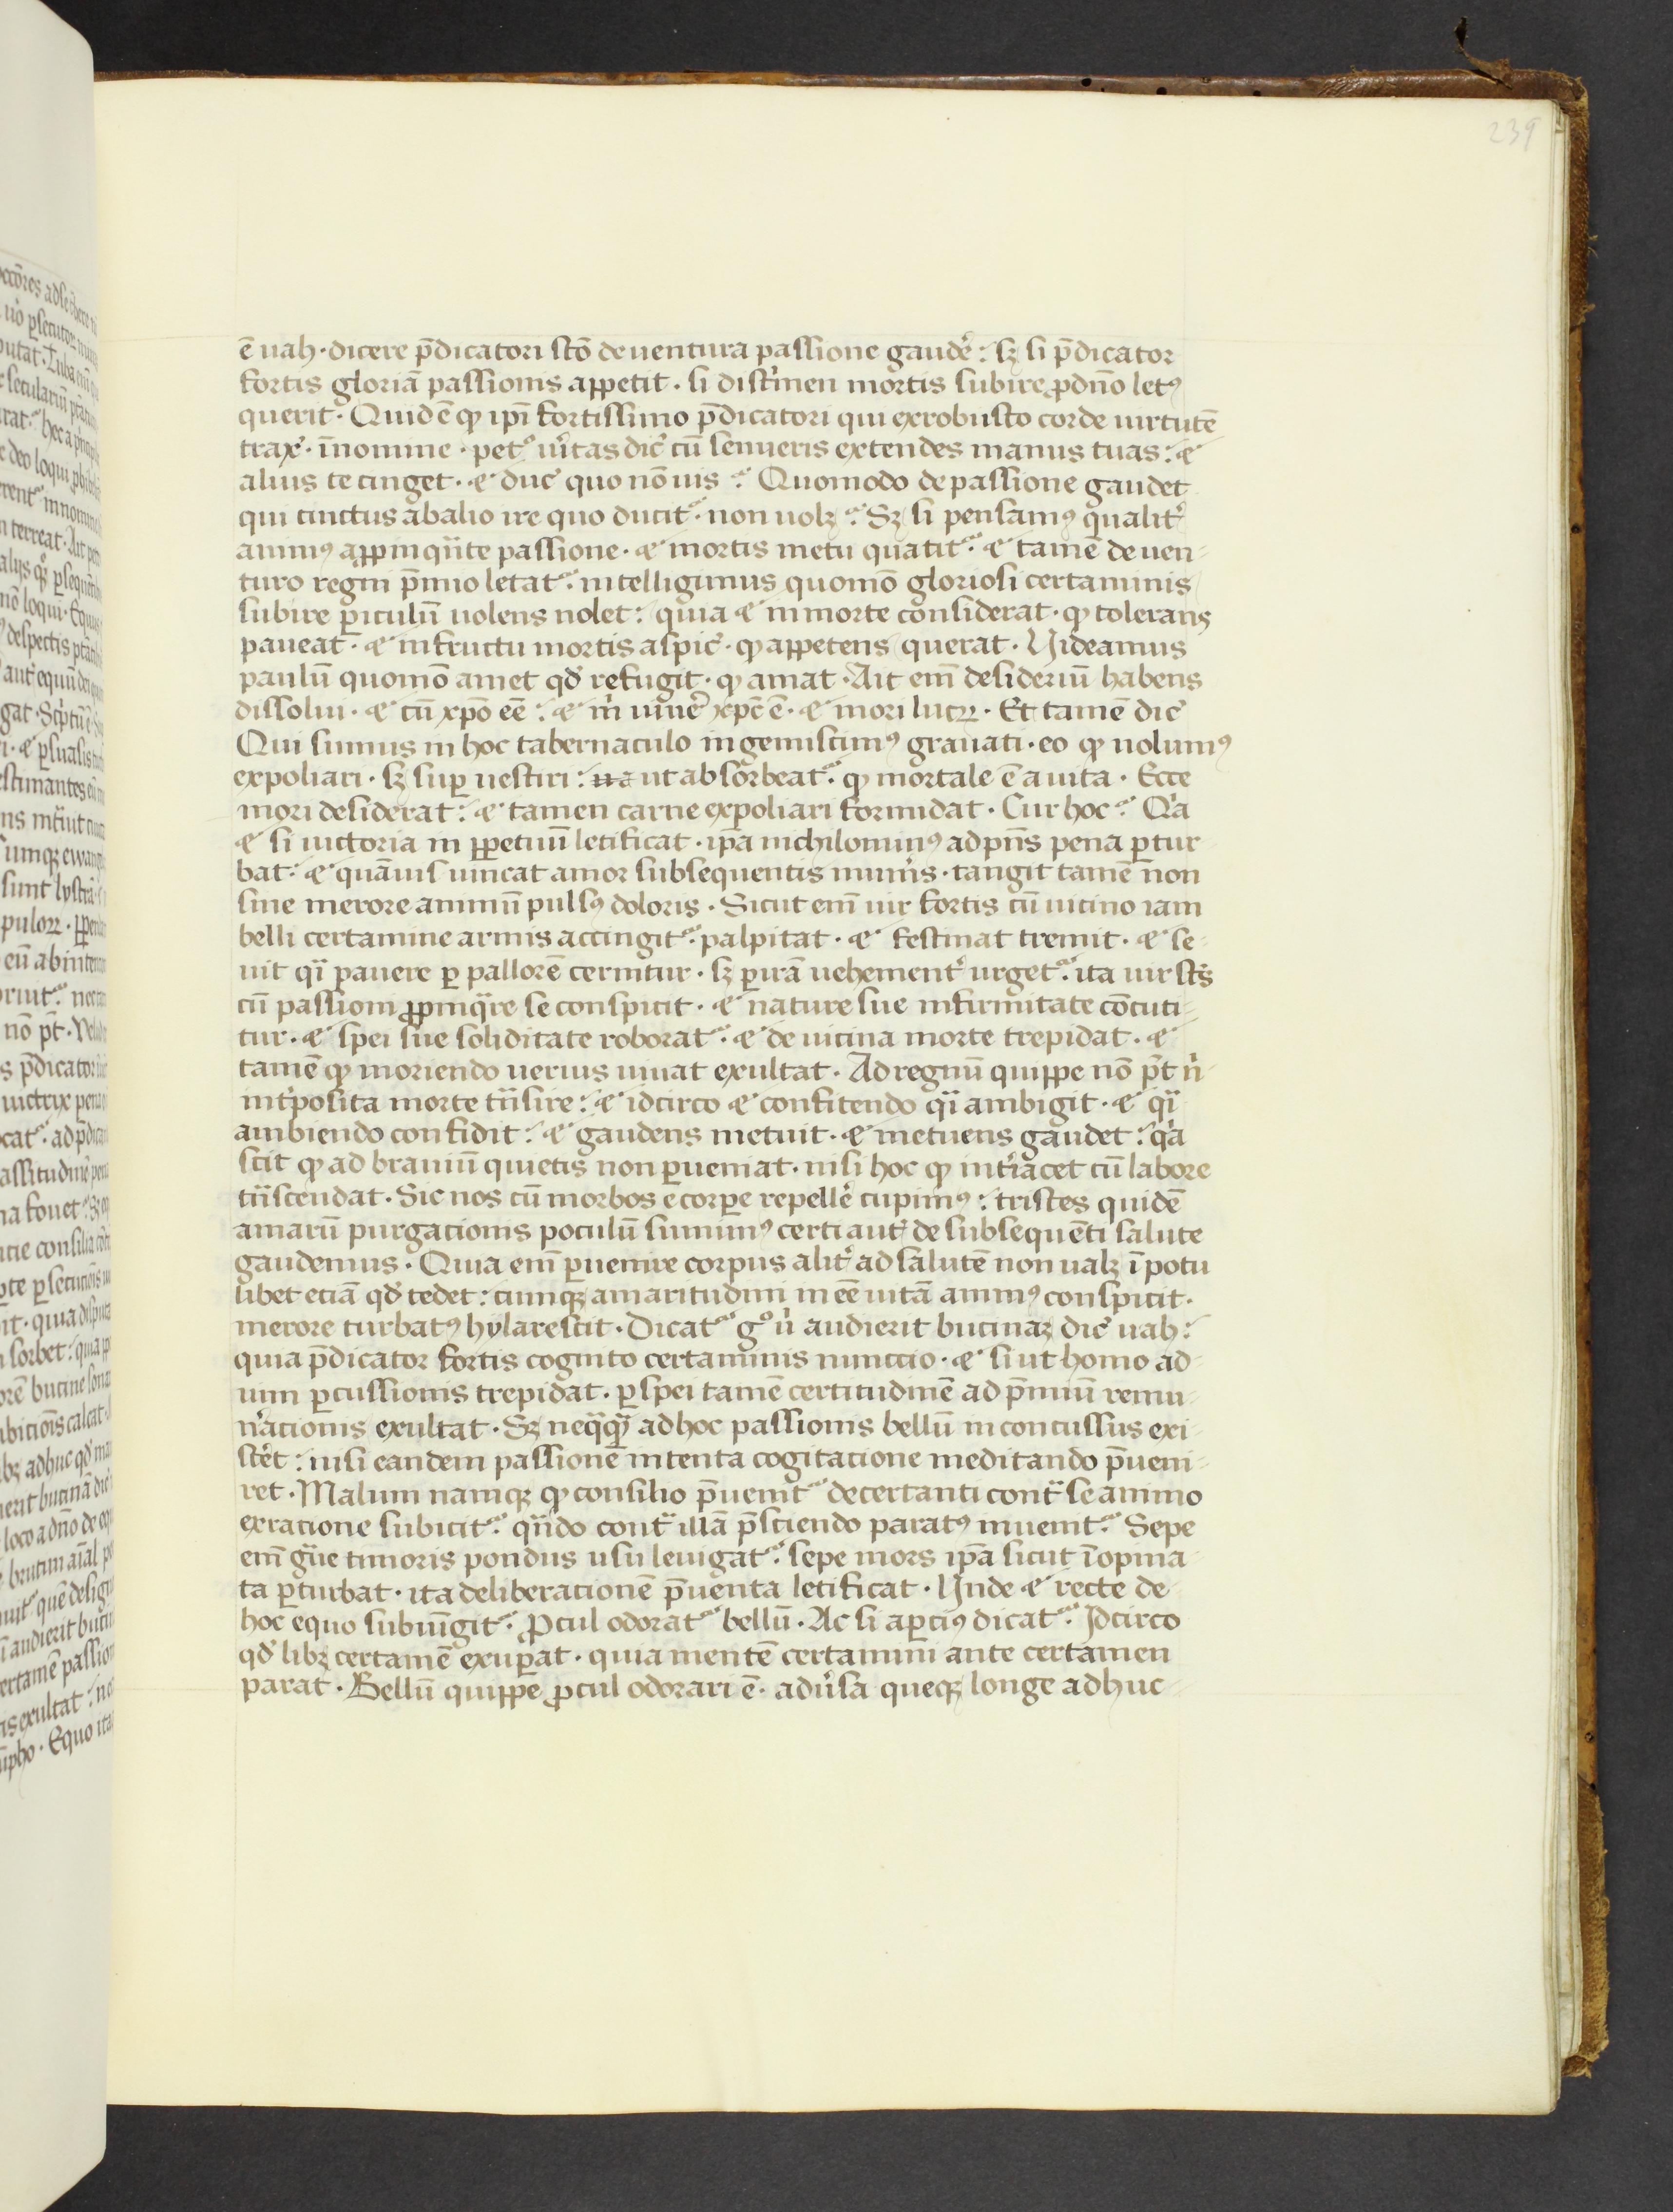 239
ē uah · dicere p̄dicatori sc̄o de uentura passione gaudeˀ : sꝫ si p̄dicator
fortis gloriā passionis appetit · si discˀmen mortis subire ꝓ dn̄o letꝰ
querit · Quid ē ꝙ ip̄i fortissimo p̄dicatori qui ex robusto corde uirtutē
traxˀ · ī nomine · petˀ uˀitas dicˀ cū senueris extendes manus tuas : ⁊
alius te cinget · ⁊ ducˀ quo nō uis · Quomodo de passione gaudet
qui cinctus ab alio ire quo ducitᷣ · non uolꝫ · Sꝫ si pensamꝰ qualitˀ
animꝰ appinqͣnte passione · ⁊ mortis metu quatitᷣ · ⁊ tamē de uen-
turo regni p̄mio letatᷣ · intelligimus quomō gloriosi certaminis
subire ꝑiculū uolens nolet : quia ⁊ in morte considerat · ꝙ tolerans
paueat · ⁊ in fructu mortis aspicˀ · ꝙ appetens querat · Uideamus
paulū quomō amet qd̄ refugit · ꝙ amat · Ait em̄ desideriū habens
dissolui · ⁊ cū xp̄o eē : ⁊ mˀ uiuēˀ xp̄c ē · ⁊ mori lucꝝ · Et tamē dicˀ
Qui sumus in hoc tabernaculo ingemiscimꝰ grauati · eo ꝙ nolumꝰ
expoliari · sꝫ suꝑ uestiri : ut absorbeatᷣ · ꝙ mortale ē a uita · Ecce
mori desiderat : ⁊ tamen carne expoliari formidat · Cur hoc · Qͥa
⁊ si uictoria in ꝑpetuū letificat · ip̄a nichilominꝰ ad pn̄s pena ꝑtur
bat · ⁊ quāuis uincat amor subsequentis munˀis · tangit tamē non
sine merore animū pulsꝰ doloris · Sicut em̄ uir fortis cū uicino iam
belli certamine armis accingitᷣ · palpitat · ⁊ festinat tremit · ⁊ se-
uit qͣi pauere ꝑ pallorē cernitur · sꝫ ꝑ irā uehementˀ urgetᷣ · ita uir sc̄s
cū passioni ꝓpinqͣre se conspicit · ⁊ nature sue infirmitate cōcuti-
tur · ⁊ spei sue soliditate roboratᷣ · ⁊ de uicina morte trepidat · ⁊
tamē ꝙ moriendo uerius uiuat exultat · Ad regnū quippe nō p̄t nͥ
intˀposita morte tͣnsire : ⁊ idcirco ⁊ confitendo qͣi ambigit · ⁊ qͣi
ambiendo confidit : ⁊ gaudens metuit · ⁊ metuens gaudet : qͥa
scit ꝙ ad brauiū quietis non ꝑueniat · nisi hoc ꝙ intˀiacet cū labore
tͣnscendat · Sic nos cū morbos e corꝑe repelleˀ cupimꝰ : tristes quidē
amarū purgacionis poculū sumimꝰ certi autˀ de subsequēti salute
gaudemus · Quia em̄ ꝑuenire corpus alitˀ ad salutē non ualꝫ ī potu
libet eciā qd̄ tedet : cumqꝫ amaritudini inēē uitā animꝰ conspicit ·
merore turbatꝰ hylarescit · Dicatᷣ gͦ uˀ audierit bucinaꝫ dicˀ uah :
quia p̄dicator fortis cognito certaminis nunccio · ⁊ si ut homo ad
uim ꝑcussionis trepidat · ꝑ spei tamē certitudinē ad p̄miū remu-
nˀacionis exultat · Sꝫ neqͣqͣ ad hoc passionis bellū inconcussus exi-
steˀt : nisi eandem passionē intenta cogitacione meditando p̄ueni-
ret · Malum namqꝫ ꝙ consilio p̄uenitᷣ decertanti contͣ se animo
ex racione subicitᷣ · qͣndo contͣ illā p̄sciendo paratꝰ inuenitᷣ · Sepe
em̄ gͣue timoris pondus usu leuigatᷣ · sepe mors ip̄a sicut īopina
ta ꝑturbat · ita deliberacionē p̄uenta letificat · Unde ⁊ recte de
hoc equo subiūgitᷣ · Ꝓcul odoratᷣ bellū · Ac si aꝑciꝰ dicatᷣ · Idcirco
qd̄ libꝫ certamē exuꝑat · quia mentē certamini ante certamen
parat · Bellū quippe ꝓcul odorari ē · aduˀsa queqꝫ longe adhuc